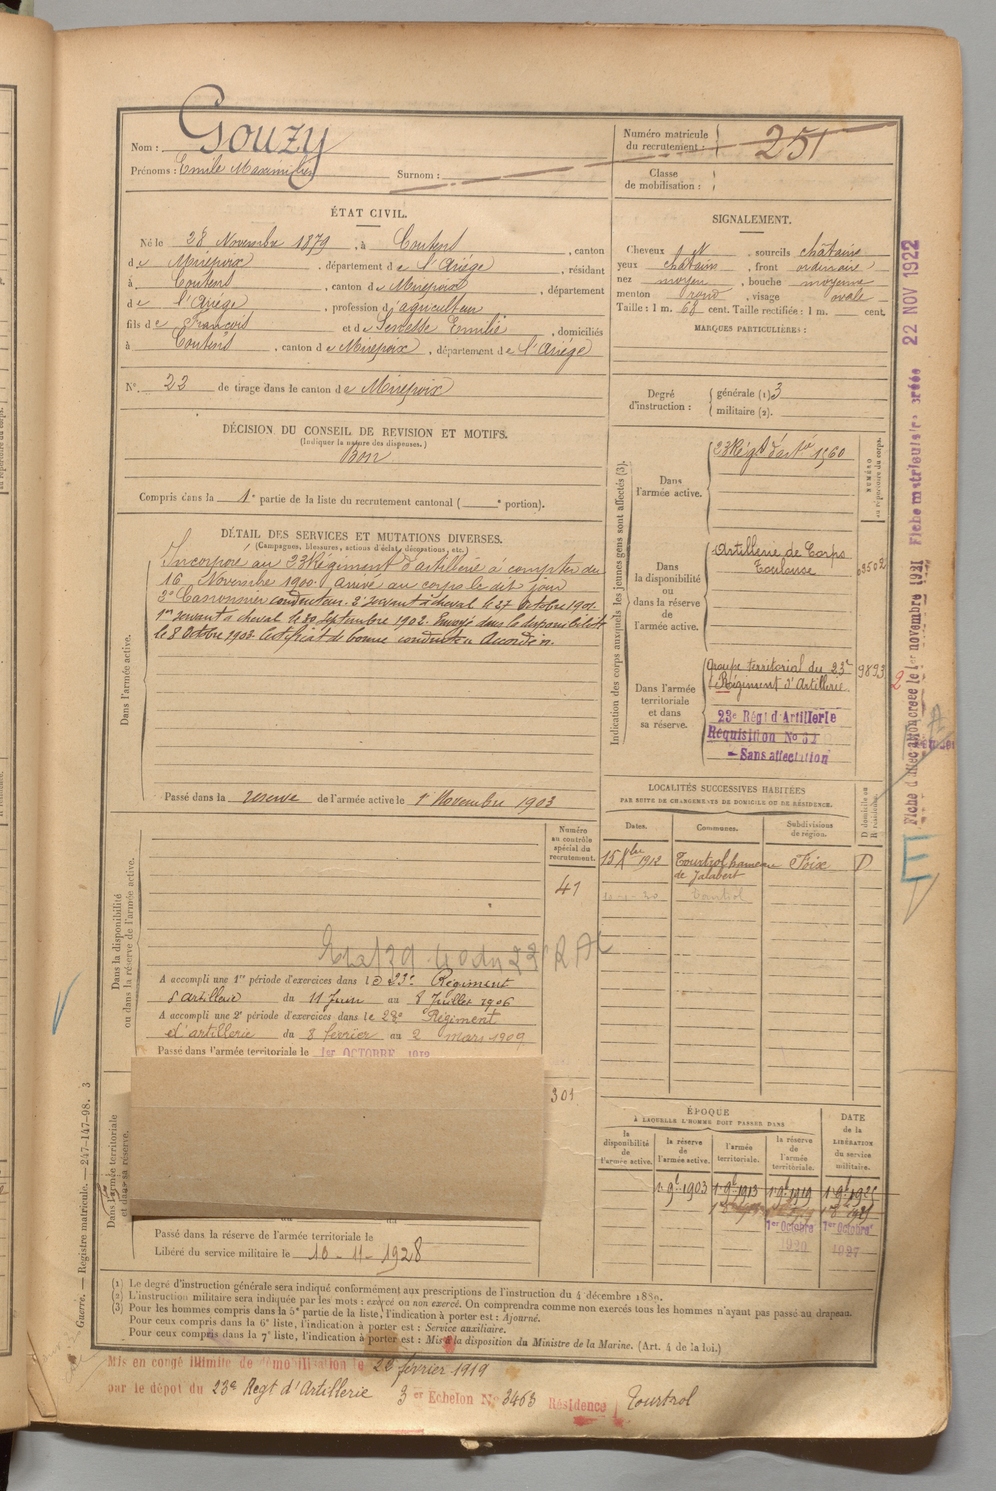 Nom : Gouzy
Prénoms : Emile Maximilien Surnom :
Numéro matricule du recrutement : 251
Classe de mobilisation :
ÉTAT CIVIL.
Né le 28 Novembre 1879, à Coutens, canton
de Mirepoix, département de l'Ariége, résidant
à Coutens, canton de Mirepoix, département
de l'Ariége, profession d'agriculteur
fils de François et de Emilie, domiciliés
à Coutens, canton de Mirepoix, département de l'Ariége
N° 22 de tirage dans le canton de Mirepoix
SIGNALEMENT.
Cheveux, sourcils châtains
yeux châtains, front ordinaire
nez moyen, bouche moyenne
menton rond, visage ovale
Taille : 1 m. 68 cent. Taille rectifiée : 1 m. cent.
MARQUES PARTICULIÈRES :
Degré d'instruction : générale (1) 3
militaire (2).
DÉCISION DU CONSEIL DE REVISION ET MOTIFS.
(Indiquer la nature des dispenses.)
Bon
Compris dans la 1e partie de la liste du recrutement cantonal ( e portion).
DÉTAIL DES SERVICES ET MUTATIONS DIVERSES.
(Campagnes, blessures, actions d'éclat, décorations, etc.)
Dans l'armée active.
Incorporé au 23 Régiment d'artillerie à compter du
16 Novembre 1900. arrivé au corps le dit jour
2e Canonnier conducteur. 2e servant à cheval le 27 Octobre 1901.
1er servant à cheval le 30 Septembre 1902. Envoyé dans la disponibilité
le 8 Octobre 1903. Certificat de bonne conduite Accordé.
Passé dans la réserve de l'armée active le 1er Novembre 1903
Indication des corps auxquels les jeunes gens sont affectés (3).
NUMÉRO au répertoire du corps.
Dans l'armée active.
23 Régt d'artie 1560
Dans la disponibilité ou dans la réserve de l'armée active.
Artillerie de Corps
Toulouse
Dans l'armée territoriale et dans sa réserve.
Groupe territorial du 23e
Régiment d'Artillerie. 9893
23e Régt d'Artillerie
Réquisition No
Sans affectation
LOCALITÉS SUCCESSIVES HABITÉES
PAR SUITE DE CHANGEMENTS DE DOMICILE OU DE RÉSIDENCE.
Dates. Communes. Subdivisions de région. D domicile ou R résidence.
15 Xbre 1912 Tourtrol hameau Foix D
de Jalabert
Tourtrol
Dans la disponibilité ou dans la réserve de l'armée active.
Numéro au contrôle spécial du recrutement.
41
A accompli une 1re période d'exercices dans le 23e Régiment
d'artillerie du 11 Juin au 8 Juillet 1906
A accompli une 2e période d'exercices dans le 23e Régiment
d'artillerie du 8 février au 2 mars 1909
Passé dans l'armée territoriale le 1er OCTOBRE
301
Dans l'armée territoriale et dans sa réserve.
Passé dans la réserve de l'armée territoriale le
Libéré du service militaire le 10-11-1928
ÉPOQUE
À LAQUELLE L'HOMME DOIT PASSER DANS
la disponibilité de l'armée active.
la réserve de l'armée active.
l'armée territoriale.
la réserve de l'armée territoriale.
DATE de la LIBÉRATION du service militaire.
1 9e 1903 1 9e 1913 1 9e 1919
1er Octobre 1er Octobre
1920 1927
(1) Le degré d'instruction générale sera indiqué conformément aux prescriptions de l'instruction du 4 décembre 1889.
(2) L'instruction militaire sera indiquée par les mots : exercé ou non exercé. On comprendra comme non exercés tous les hommes n'ayant pas passé au drapeau.
(3) Pour les hommes compris dans la 5e partie de la liste, l'indication à porter est : Ajourné.
Pour ceux compris dans la 6e liste, l'indication à porter est : Service auxiliaire.
Pour ceux compris dans la 7e liste, l'indication à porter est : Mis à la disposition du Ministre de la Marine. (Art. 4 de la loi.)
Mis en congé illimité de démobilisation le 22 février 1919
par le dépot du 23e Regt d'Artillerie 3 er Echelon No 3463 Résidence Tourtrol
Guerre. — Registre matricule. — 247-147-98. 3
22 NOV 1922